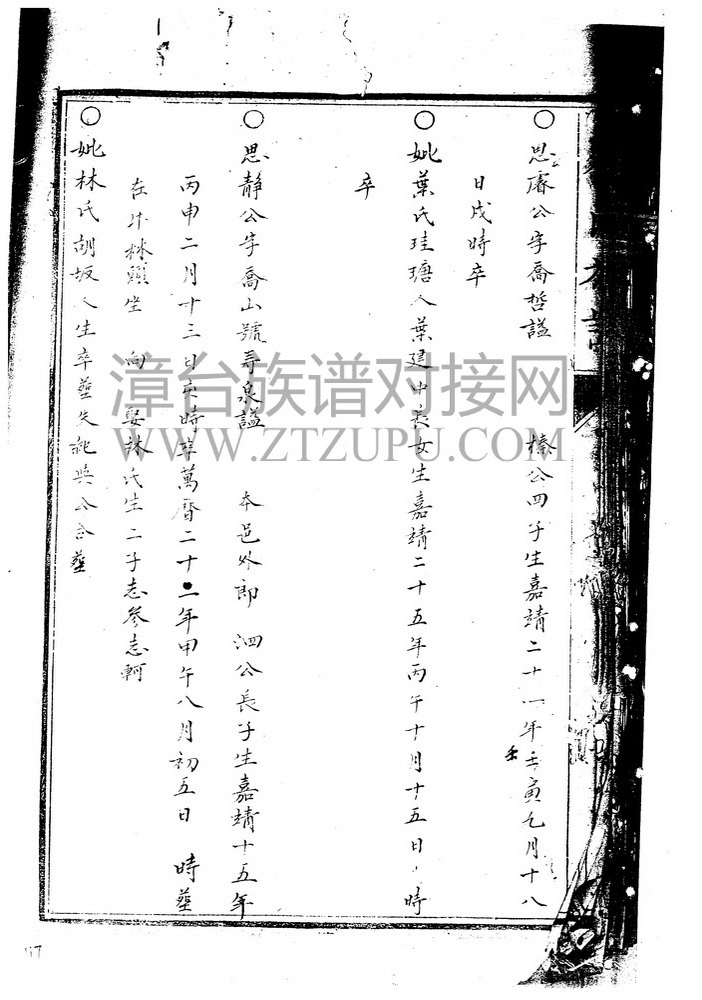 ○思睿公字喬哲謚 榛公四子生嘉靖二十一年壬寅七月十八
日戌時卒
○妣葉氏珪瑭人葉建中長女生嘉靖二十五年丙午十月十五日 時
卒
○思靜公字喬山號壽泉謚 本邑外郎 泗公長子生嘉靖十五年
丙申二月十三日亥時卒萬曆二十二年甲午八月初五日 時塟
在 林頭坐 向 娶林氏生二子志參志軻
○妣林氏胡坂人生卒塟失紀與公合塟
漳台族谱对接网
WWW.ZTZUPU.COM